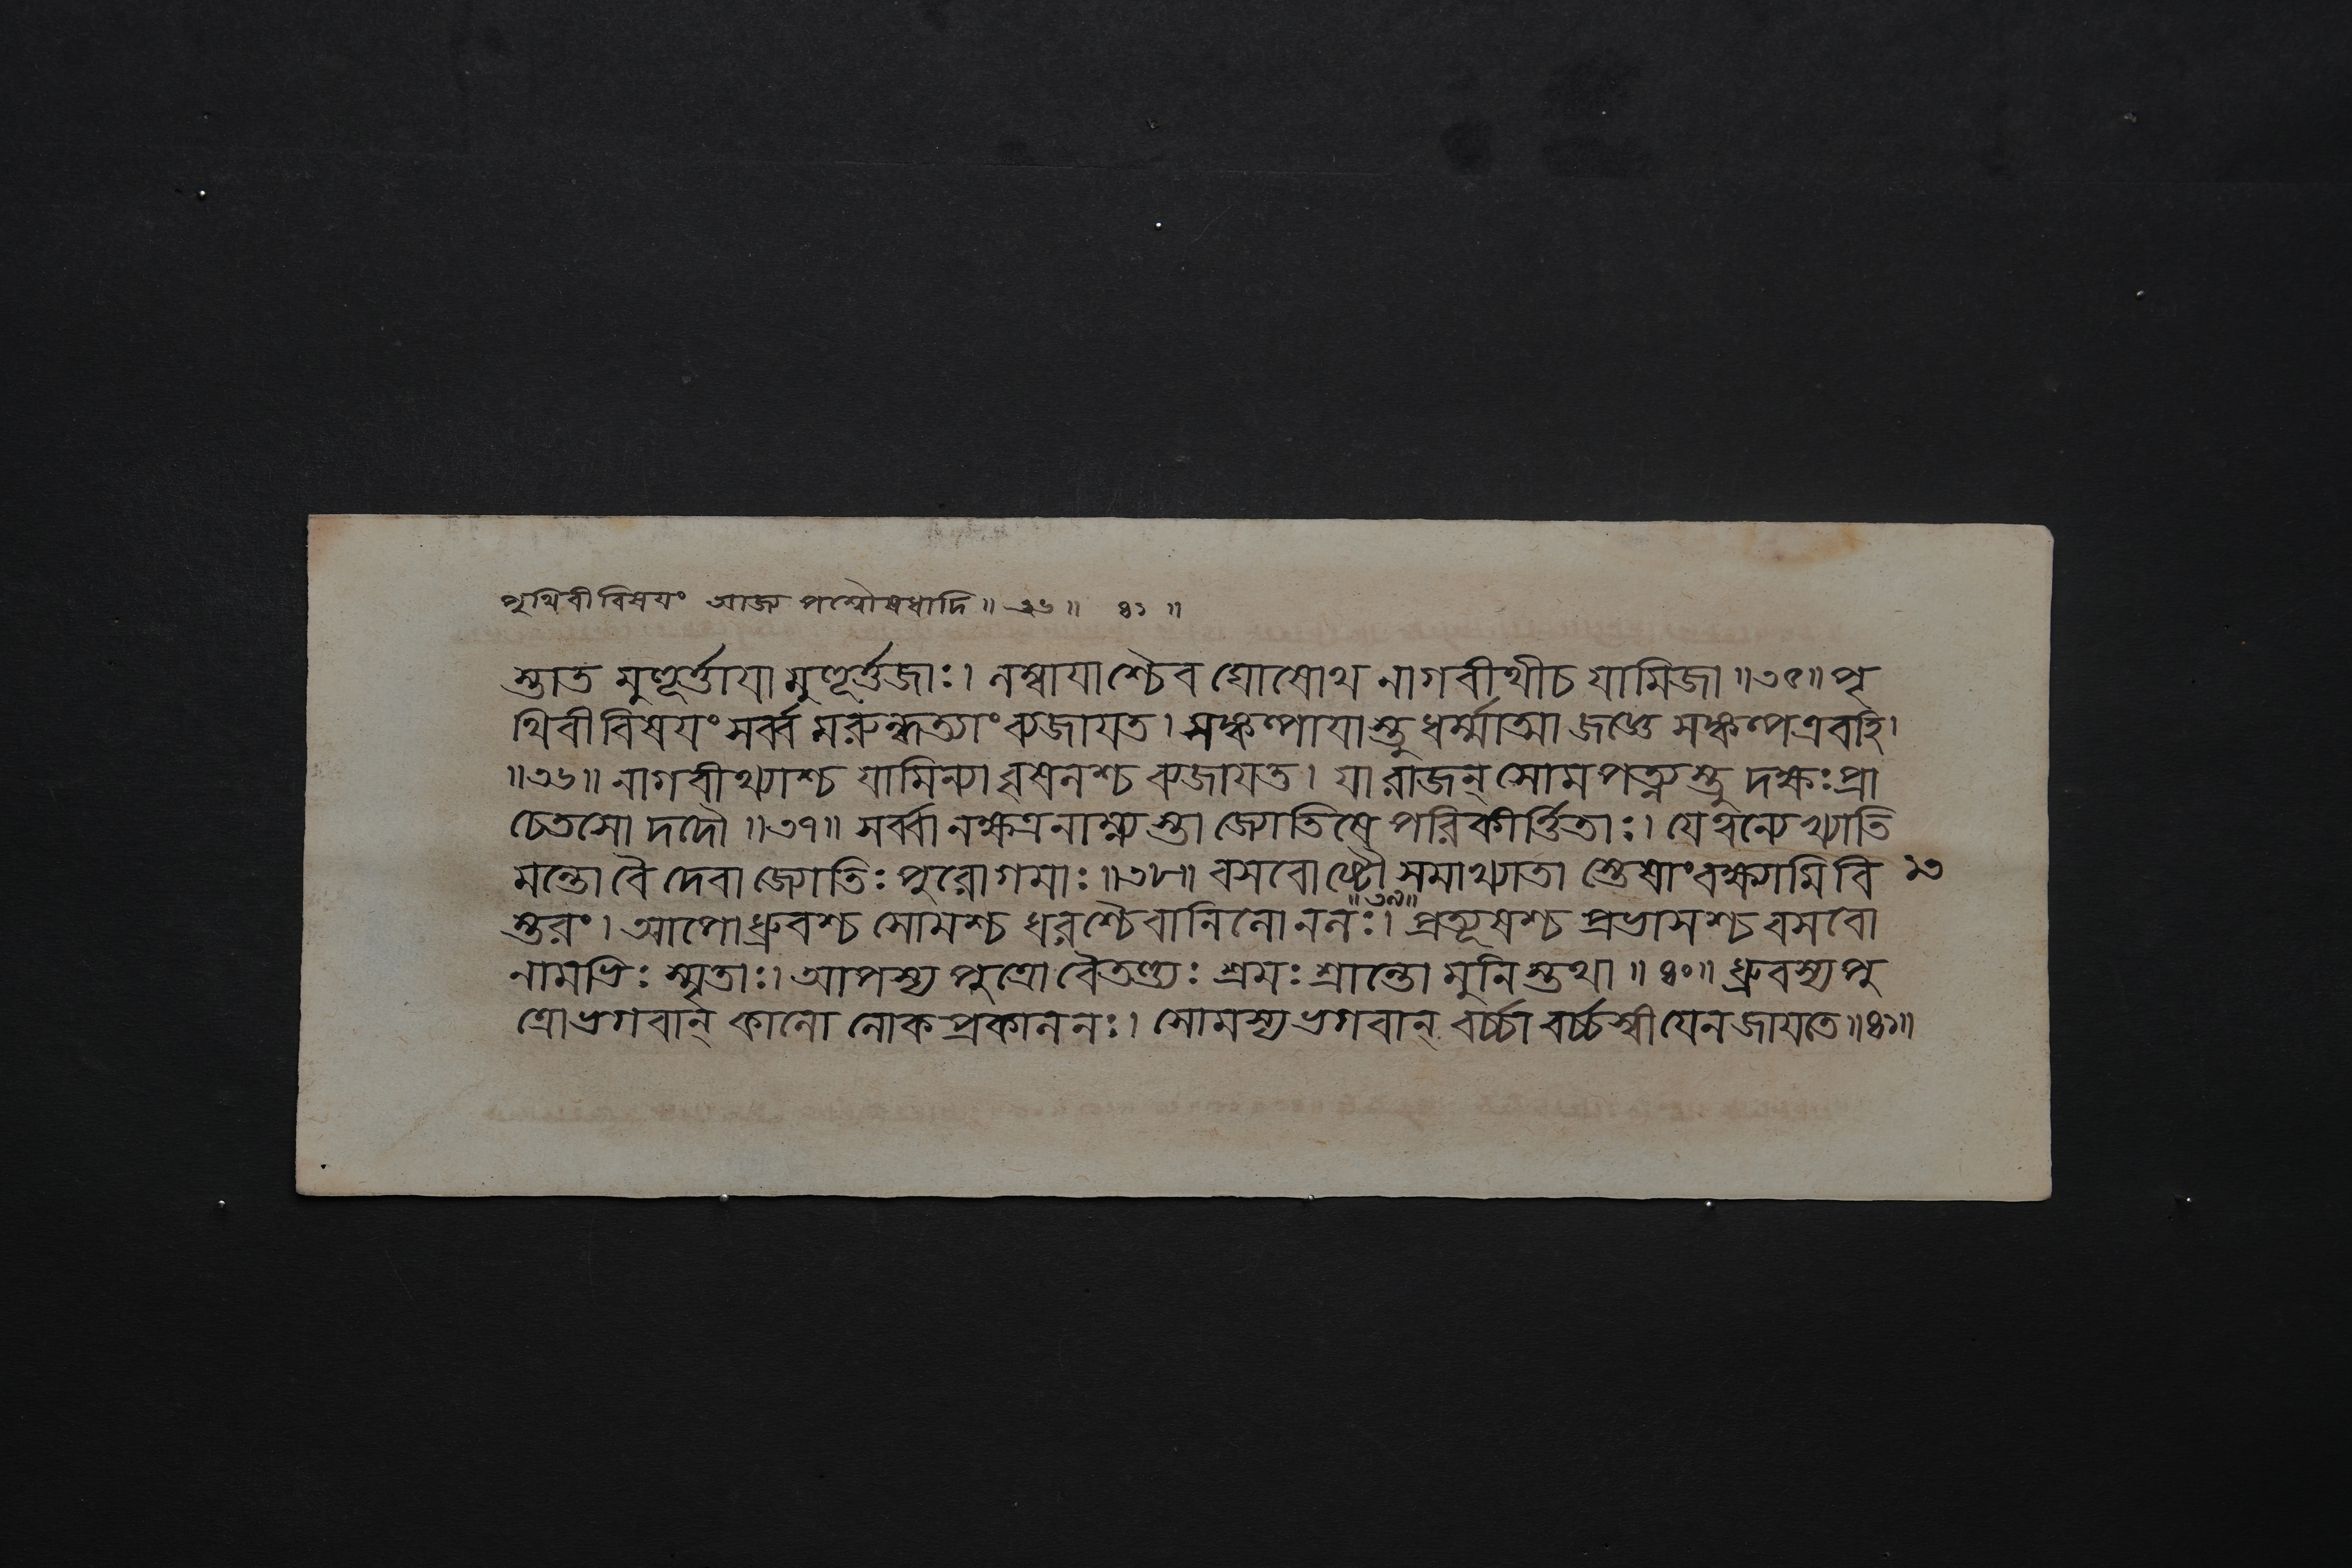 পৃথিবীবিষয়ং আজ্য পশ্বৌষধাদি ॥ ৩৬ ॥ ৪১ ॥
স্তাত মুহূর্ত্তায়া মুহূর্ত্তজাঃ। লম্বায়াশ্চৈব ঘোষোথ নাগবীথীচ যামিজা ॥৩৫॥ পৃ
থিবীবিষয়ং সর্ব্ব মরুন্ধত্যাং ব্যজায়ত। সঙ্কল্পায়াস্তু ধর্ম্মাত্মা জজ্ঞে সঙ্কল্পএবহি।
॥৩৬॥ নাগবীথ্যাশ্চ যামিন্যা বৃষলশ্চ ব্যজায়ত। যা রাজন্ সোমপত্ন্যস্তু দক্ষঃ প্রা
চেতসো দদৌ ॥৩৭॥ সর্ব্বা নক্ষত্রনাম্ন্যস্তা জ্যোতিষে পরিকীর্ত্তিতাঃ। যেত্বন্যেখ্যাতি
মন্তো বৈ দেবা জ্যোতিঃ পুরোগমাঃ ॥৩৮॥ বসবোষ্টৌ সমাখ্যাতা স্তেষাং বক্ষ্যামি বি ১৩
স্তরং। আপো ধ্রুবশ্চ সোমশ্চ ধরশ্চৈবানিলোনলঃ। ॥৩৯॥ প্রত্যূষশ্চ প্রভাসশ্চ বসবো
নামভিঃ স্মৃতাঃ। আপস্য পুত্রো বৈতণ্ড্যঃ শ্রমঃ শ্রান্তো মুনিস্তথা ॥ ৪০॥ ধ্রুবস্য পু
ত্রো ভগবান্ কালো লোকপ্রকালনঃ। সোমস্য ভগবান্ বর্চ্চা বর্চ্চস্বী যেন জায়তে ॥৪১॥